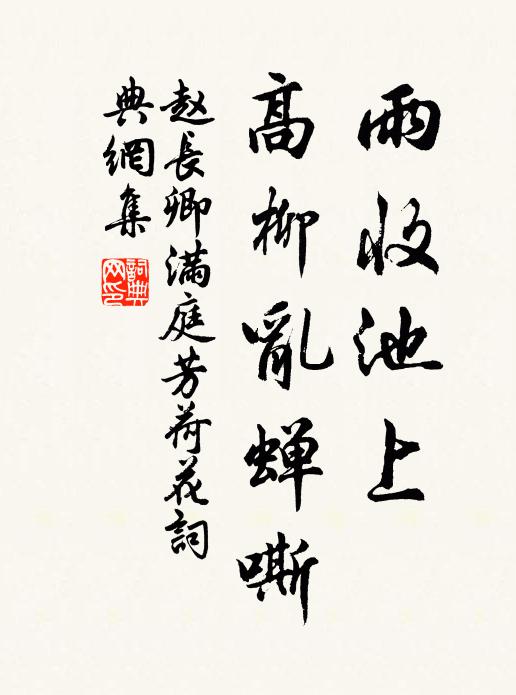 雨收池上
高柳亂蟬嘶
赵長卿满庭芳荷花詞
典網集
詞典网印